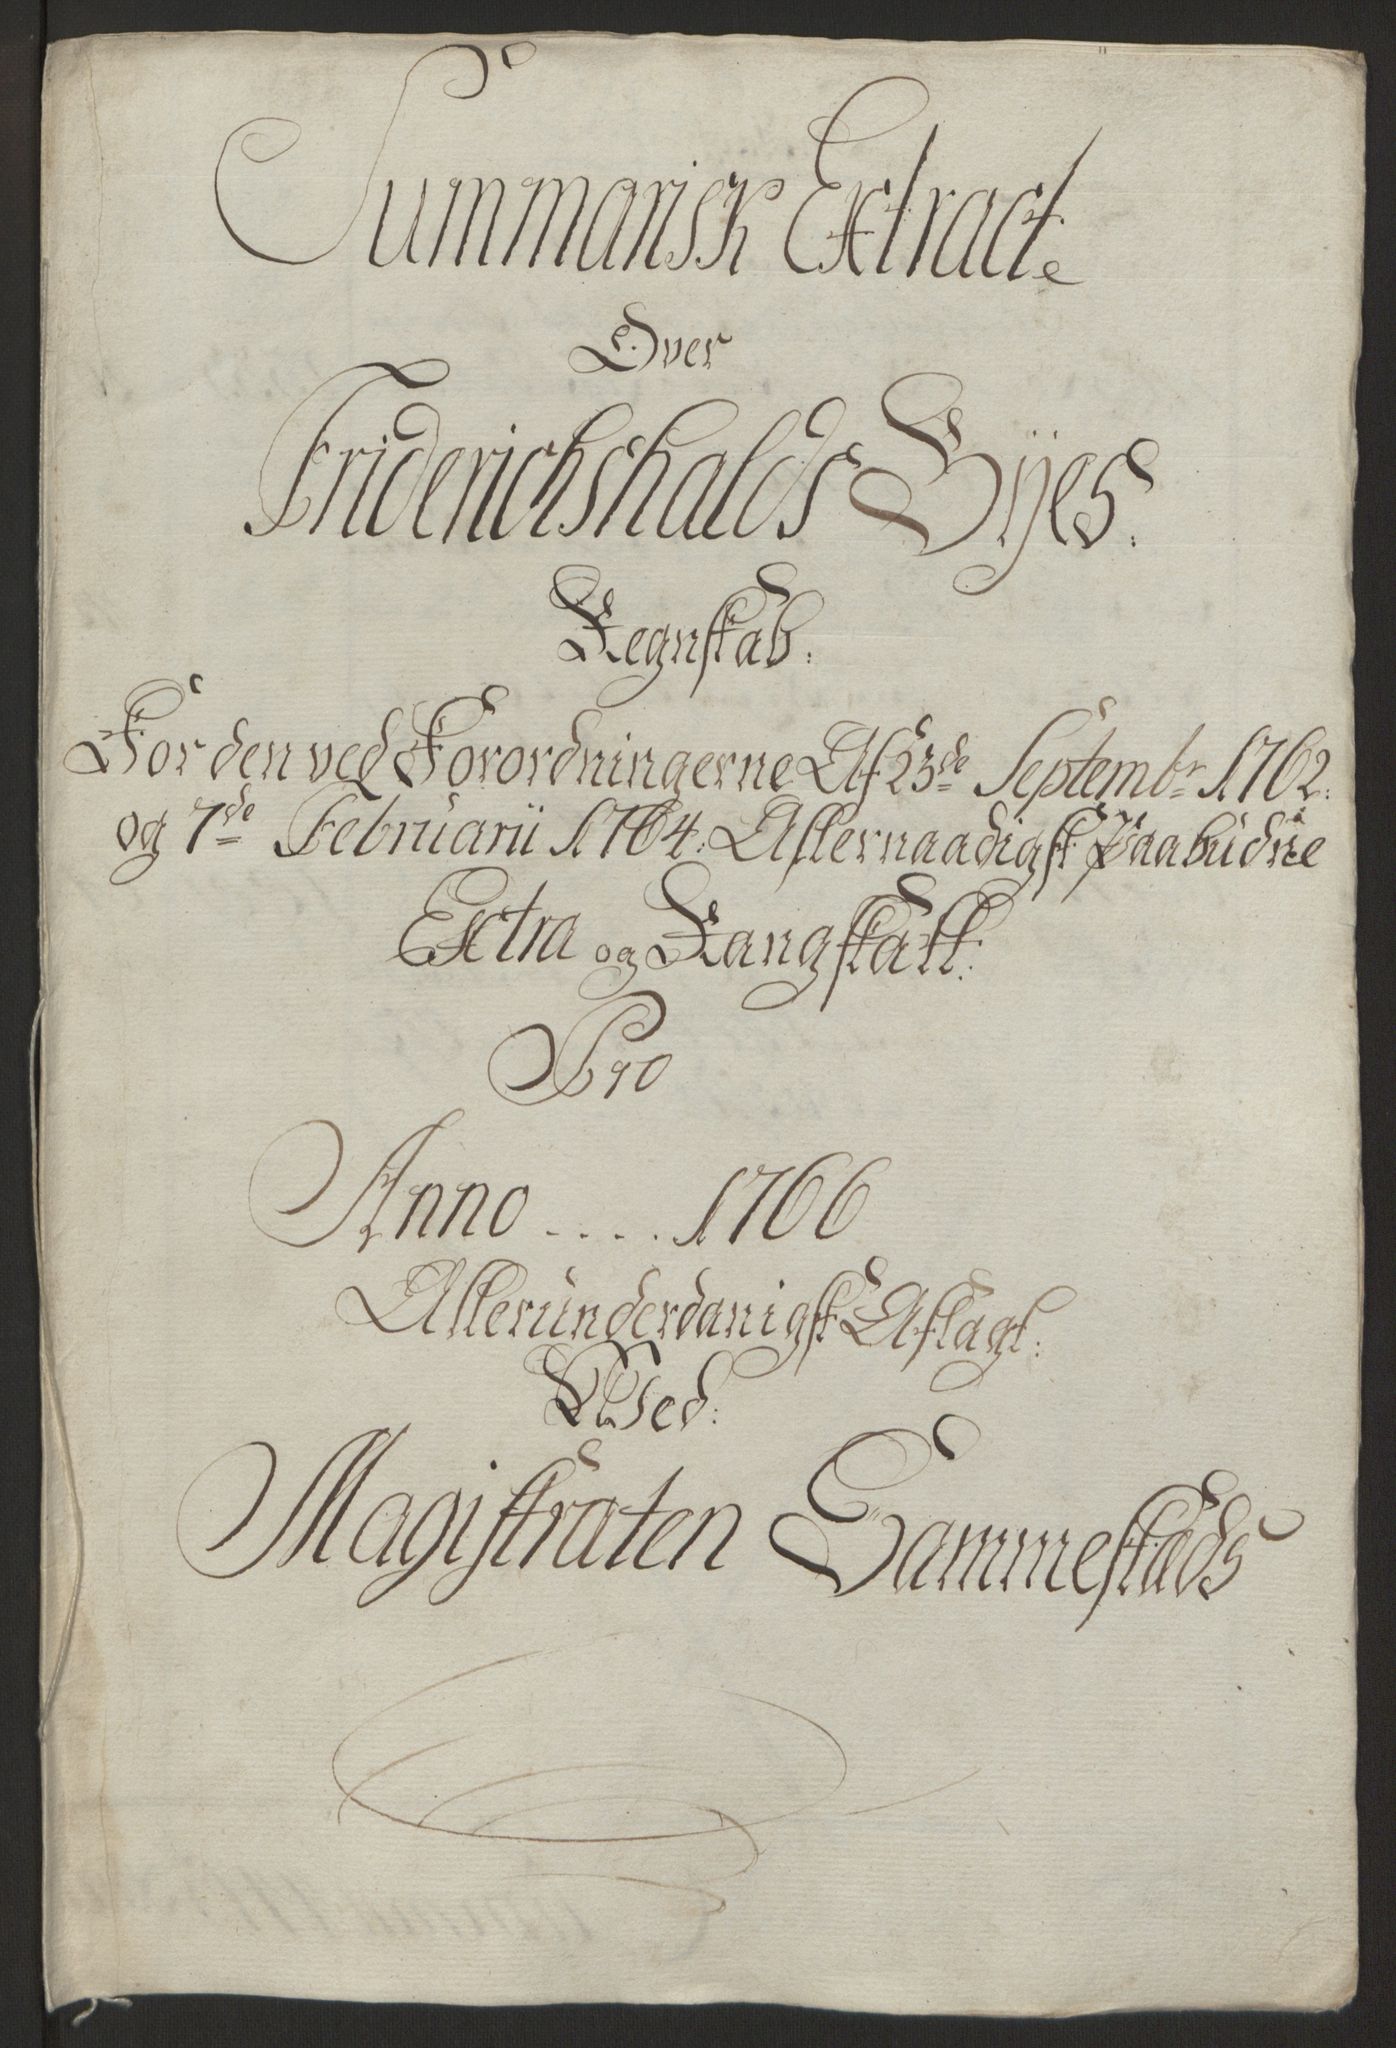 Summarisk Extract
Over
Friderichshalds Byes
Regnskab
For den ved Forordningerne Af 23de Septembr 1762
og 7de Februarii 1764 Allernaadigst Paabudne
Extra og Rangskatt
Pro
Anno .... 1766
Allerunderdanigst Aflagt
Med
Magistraten Sammestæds